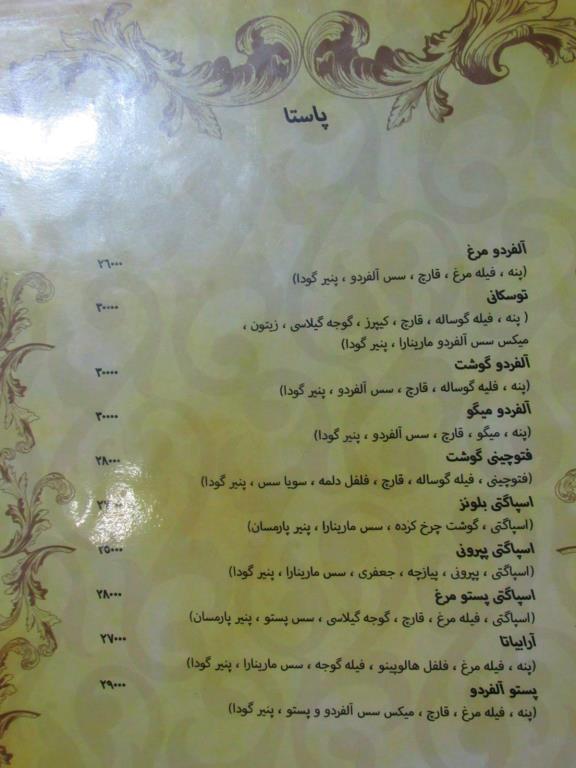 پاستا
آلفردو مرغ ۲۶۰۰۰
(پنه ، فیله مرغ ، قارچ ، سس آلفردو ، پنیر گودا)
توسکانی ۳۰۰۰۰
( پنه ، فیله گوساله ، قارچ ، کیپرز ، گوجه گیلاسی ، زیتون ،
میکس سس آلفردو مارینارا ، پنیر گودا)
آلفردو گوشت ۳۰۰۰۰
(پنه ، فلیه گوساله ، قارچ ، سس آلفردو ، پنیر گودا)
آلفردو میگو ۳۰۰۰۰
(پنه ، میگو ، قارچ ، سس آلفردو ، پنیر گودا)
فتوچینی گوشت ۲۸۰۰۰
(فتوچینی ، فیله گوساله ، قارچ ، فلفل دلمه ، سویا سس ، پنیر گودا)
اسپاگتی بلونز
(اسپاگتی ، گوشت چرخ کرده ، سس مارینارا ، پنیر پارمسان)
اسپاگتی پپرونی ۲۵۰۰۰
(اسپاگتی ، پپرونی ، پیازچه ، جعفری ، سس مارینارا ، پنیر گودا)
اسپاگتی پستو مرغ ۲۸۰۰۰
(اسپاگتی ، فیله مرغ ، قارچ ، گوجه گیلاسی ، سس پستو ، پنیر پارمسان)
آرابیاتا ۲۷۰۰۰
(پنه ، فیله مرغ ، فلفل هالوپینو ، فیله گوجه ، سس مارینارا ، پنیر گودا)
پستو آلفردو ۲۹۰۰۰
(پنه ، فیله مرغ ، قارچ ، میکس سس آلفردو و پستو ، پنیر گودا)